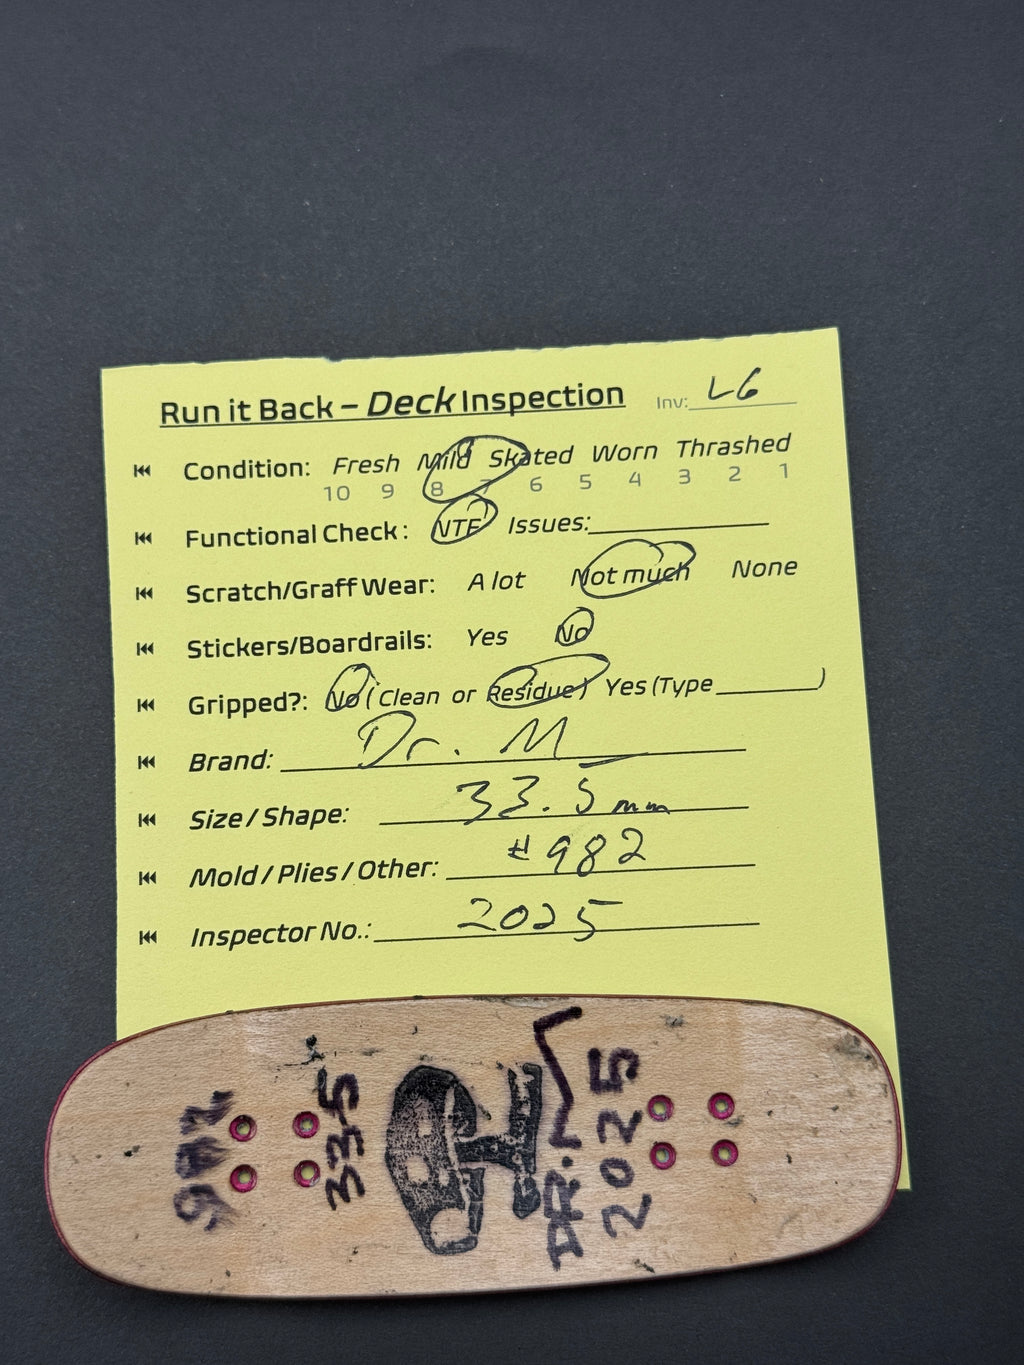 Run it Back – Deck Inspection Inv: L6
Condition: Fresh Mild Skated Worn Thrashed
10 9 8 7 6 5 4 3 2 1
Functional Check: NTF Issues:
Scratch/Graff Wear: A lot Not much None
Stickers/Boardrails: Yes No
Gripped?: No (Clean or Residue) Yes (Type )
Brand: Dr. M
Size / Shape: 33.5 mm
Mold / Plies / Other: #982
Inspector No.: 2025
982
33.5
DR. M
2025